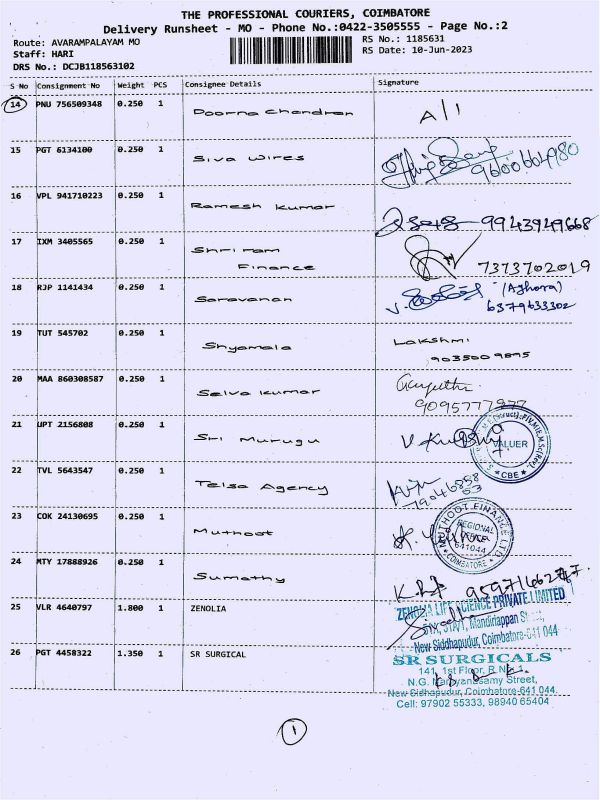 THE PROFESSIONAL COURIERS, COIMBATORE
Delivery Runsheet - MO - Phone No.:0422-3505555 - Page No.:2
Route: AVARAMPALAYAM MO
RS No.: 1185631
Staff: HARI
RS Date: 10-Jun-2023
DRS No.: DCJB118563102
S No Consignment No Weight PCS Consignee Details Signature
14 PNU 756509348 0.250 1 Poorna Chandran A/1
15 PGT 6134100 0.250 1 Siva Wires
16 VPL 941710223 0.250 1 Ramesh Kumar 9943949668
17 IXM 3405565 0.250 1 Shri ram
Finance 7373702019
18 RJP 1141434 0.250 1 Saravanan (Aghora)
6379633302
19 TUT 545702 0.250 1 Shyamala Lakshmi
9035009895
20 MAA 860308587 0.250 1 Selva Kumar
9095777977
21 UPT 2156808 0.250 1 Sri Murugu
VALUER
CBE
22 TVL 5643547 0.250 1 Telsa Agency
23 COK 24130695 0.250 1 Muthoot
MUTHOOT FINANCE LTD
REGIONAL
OFFICE
641044
COIMBATORE
24 MTY 17888926 0.250 1 Sumathy
25 VLR 4640797 1.800 1 ZENOLIA
ZENOLIA LIFE SCIENCE PRIVATE LIMITED
New Siddhapudur, Coimbatore-641 044
26 PGT 4458322 1.350 1 SR SURGICAL
SR SURGICALS
141, 1st Floor,
N.G. Narayanasamy Street,
New Sidhapudur, Coimbatore-641 044.
Cell: 97902 55333, 98940 65404
1